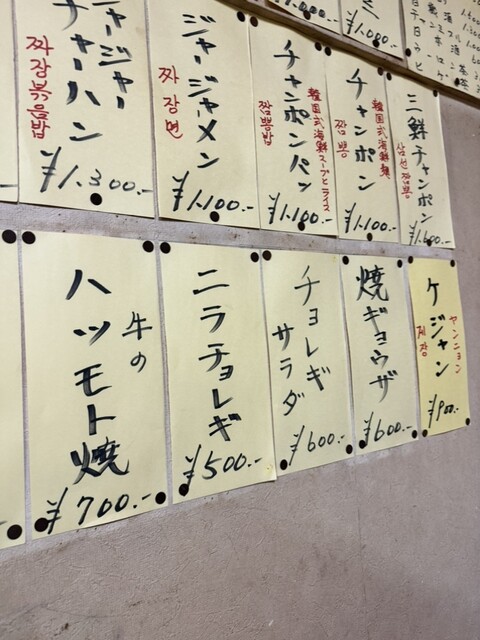 ¥1,080.-
三鮮チャンポン
삼선짬뽕
¥1,600.-
チャンポン
韓国式海鮮麺
짬뽕
¥1,100.-
チャンポンパッ
韓国式海鮮スープとライス
짬뽕밥
¥1,100.-
ジャージャメン
짜장면
¥1,100.-
ャージャー
チャーハン
짜장볶음밥
¥1,300.-
ヤンニョン
ケジャン
게장
¥900.-
焼ギョウザ
¥600.-
チョレギ
サラダ
¥600.-
ニラチョレギ
¥500.-
牛の
ハツモト焼
¥700.-